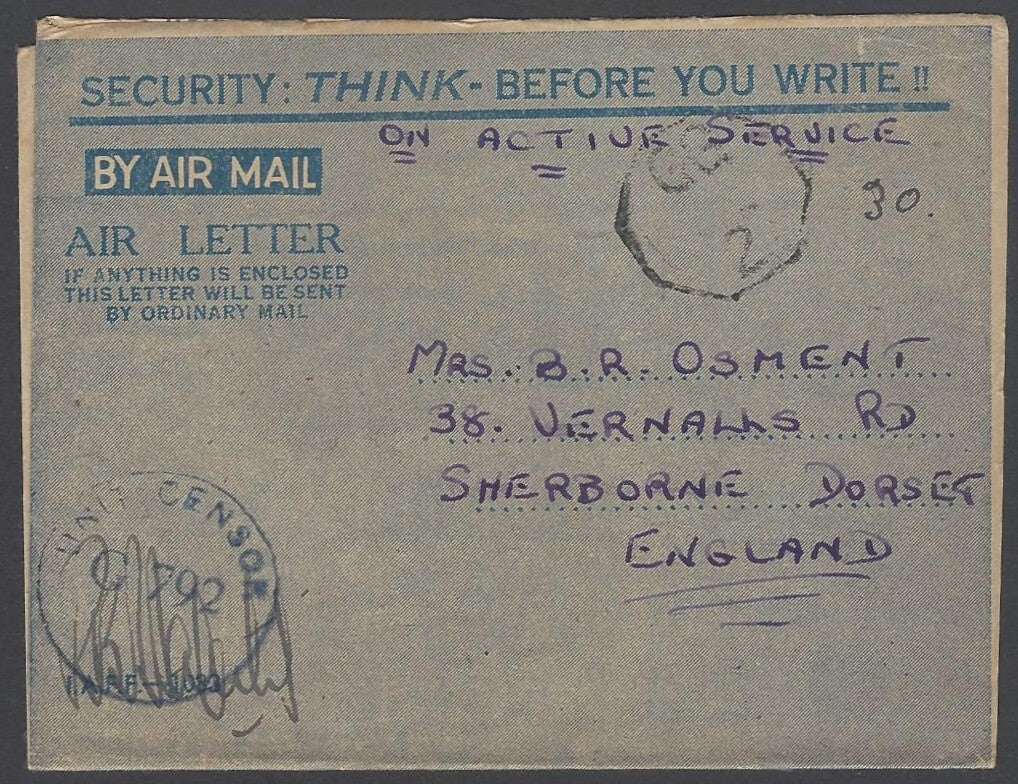 SECURITY: THINK- BEFORE YOU WRITE !!
ON ACTIVE SERVICE
BY AIR MAIL
30.
AIR LETTER
IF ANYTHING IS ENCLOSED
THIS LETTER WILL BE SENT
BY ORDINARY MAIL
2
MRS. B. R. OSMENT
38. VERNALLS RD
SHERBORNE DORSET
ENGLAND
UNIT CENSOR
C 792